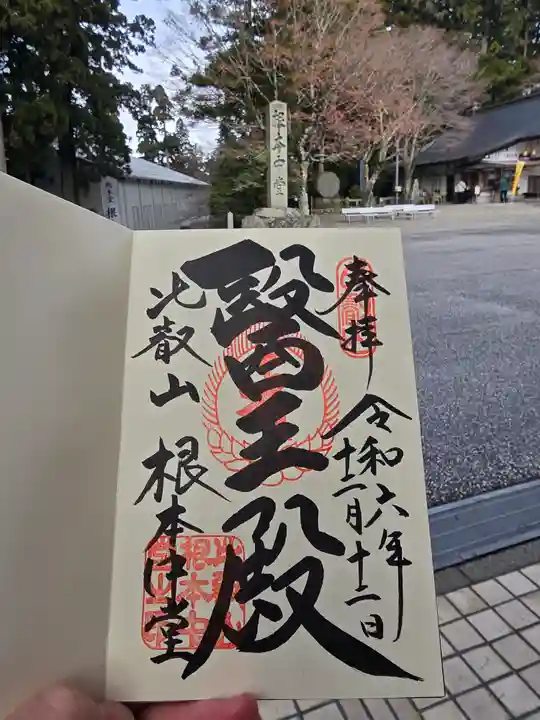 奉拝
令和六年
十二月十二日
醫王殿
比叡山 根本中堂
根本中堂